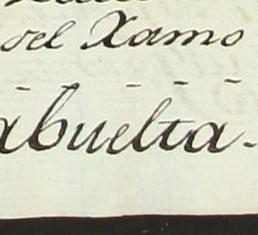 del Xamo
abuelta.